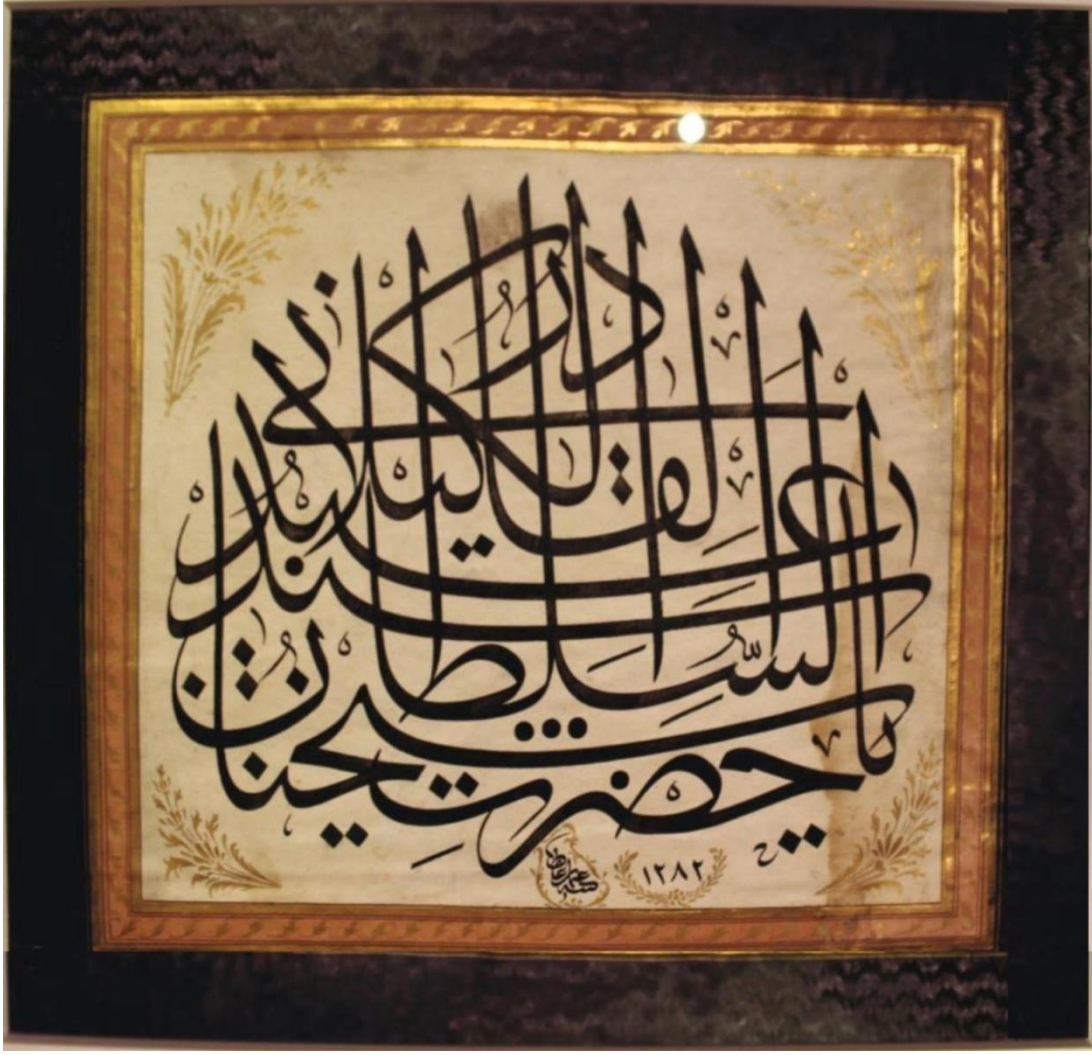 يا حضرت شيخنا
السلطان السيد
عبد القادر الكيلاني
١٢٨٢